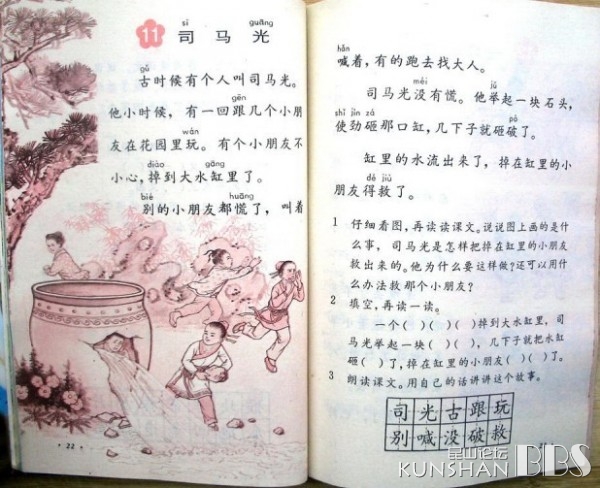 11 司马光
sī guāng
gǔ
古时候有个人叫司马光。
gēn
他小时候，有一回跟几个小朋
wán
友在花园里玩。有个小朋友不
diào gāng
小心，掉到大水缸里了。
bié huāng
别的小朋友都慌了，叫着
22
hǎn
喊着，有的跑去找大人。
méi jǔ
司马光没有慌。他举起一块石头，
shǐ jìn zá pò
使劲砸那口缸，几下子就砸破了。
缸里的水流出来了，掉在缸里的小
dé jiù
朋友得救了。
1 仔细看图，再读读课文。说说图上画的是什
么事，司马光是怎样把掉在缸里的小朋友
救出来的。他为什么要这样做？还可以用什
么办法救那个小朋友？
2 填空，再读一读。
一个（ ）（ ）（ ）掉到大水缸里，司
马光举起一块（ ）（ ），几下子就把水缸
砸（ ）了，掉在缸里的小朋友（ ）（ ）了。
3 朗读课文。用自己的话讲讲这个故事。
司光古跟玩
别喊没破救
昆山论坛
KUNSHAN BBS